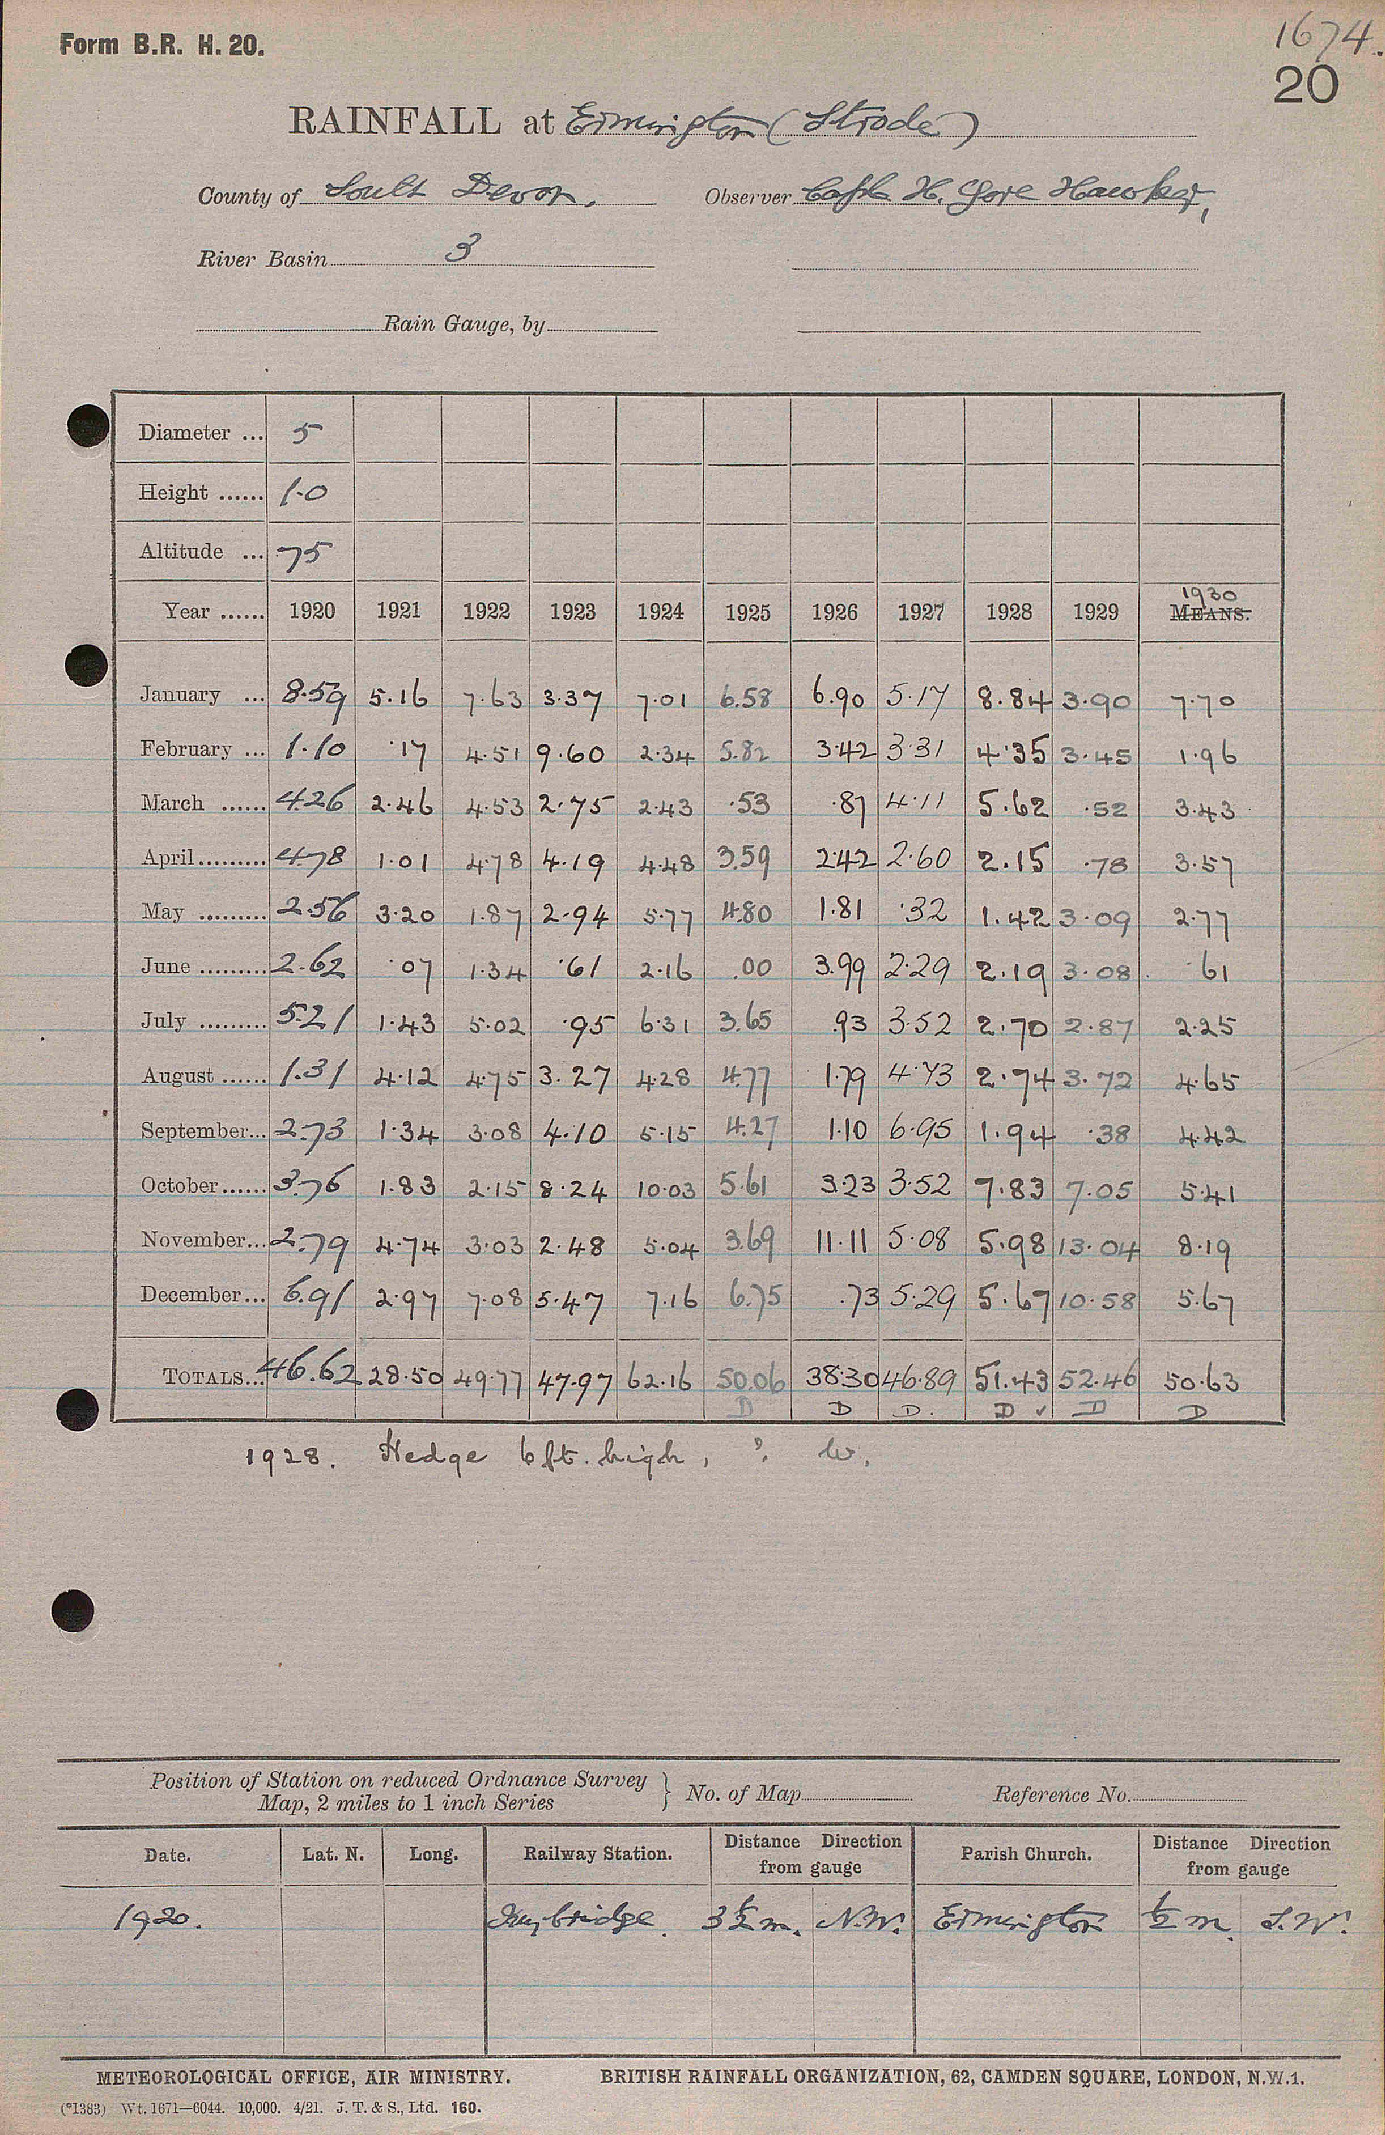 Form B.R. H. 20.
1674.
20
RAINFALL at Ermington (Strode)
County of South Devon, Observer Capt. H. Gore Hawker,
River Basin 3
Rain Gauge, by
Diameter ... 5
Height ...... 1.0
Altitude ... 75
1930
Year ...... 1920 1921 1922 1923 1924 1925 1926 1927 1928 1929 MEANS.
January ... 8.59 5.16 7.63 3.37 7.01 6.58 6.90 5.17 8.84 3.90 7.70
February ... 1.10 .17 4.51 9.60 2.34 5.82 3.42 3.31 4.35 3.45 1.96
March ...... 4.26 2.46 4.53 2.75 2.43 .53 .87 4.11 5.62 .52 3.43
April......... 4.78 1.01 4.78 4.19 4.48 3.59 2.42 2.60 2.15 .78 3.57
May ......... 2.56 3.20 1.87 2.94 5.77 4.80 1.81 .32 1.42 3.09 2.77
June ......... 2.62 .07 1.34 .61 2.16 .00 3.99 2.29 2.19 3.08 .61
July ......... 5.21 1.43 5.02 .95 6.31 3.65 .93 3.52 2.70 2.87 2.25
August ...... 1.31 4.12 4.75 3.27 4.28 4.77 1.79 4.73 2.74 3.72 4.65
September... 2.73 1.34 3.08 4.10 5.15 4.27 1.10 6.95 1.94 .38 4.42
October...... 3.76 1.83 2.15 8.24 10.03 5.61 3.23 3.52 7.83 7.05 5.41
November... 2.79 4.74 3.03 2.48 5.04 3.69 11.11 5.08 5.98 13.04 8.19
December... 6.91 2.97 7.08 5.47 7.16 6.75 .73 5.29 5.67 10.58 5.67
TOTALS... 46.62 28.50 49.77 47.97 62.16 50.06 38.30 46.89 51.43 52.46 50.63
D D D. D ✓ D D
1928. Hedge 6 ft. high, ?. W.
Position of Station on reduced Ordnance Survey
Map, 2 miles to 1 inch Series } No. of Map Reference No.
Date. Lat. N. Long. Railway Station. Distance Direction from gauge Parish Church. Distance Direction from gauge
1920. Ivybridge. 3½ m. N.W. Ermington ½ m. S.W.
METEOROLOGICAL OFFICE, AIR MINISTRY. BRITISH RAINFALL ORGANIZATION, 62, CAMDEN SQUARE, LONDON, N.W.1.
(*1383) Wt. 1671—6044. 10,000. 4/21. J. T. & S., Ltd. 160.